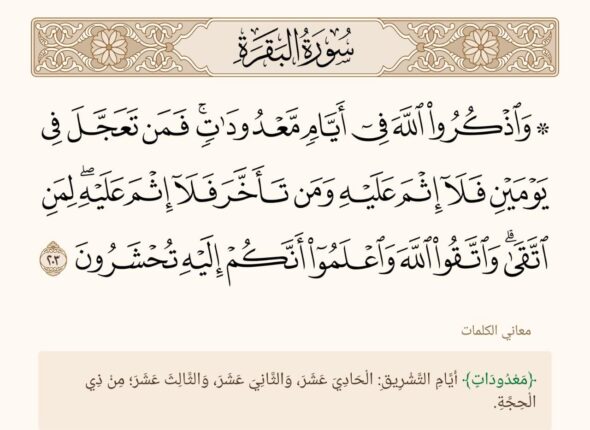 سُورَةُ البَقَرَةِ
۞ وَٱذۡكُرُواْ ٱللَّهَ فِيٓ أَيَّامٖ مَّعۡدُودَٰتٖۚ فَمَن تَعَجَّلَ فِي
يَوۡمَيۡنِ فَلَآ إِثۡمَ عَلَيۡهِ وَمَن تَأَخَّرَ فَلَآ إِثۡمَ عَلَيۡهِۖ لِمَنِ
ٱتَّقَىٰۗ وَٱتَّقُواْ ٱللَّهَ وَٱعۡلَمُوٓاْ أَنَّكُمۡ إِلَيۡهِ تُحۡشَرُونَ ٢٠٣
معاني الكلمات
﴿مَعْدُودَاتٍ﴾ أَيَّامِ التَّشْرِيقِ: الْحَادِيَ عَشَرَ، وَالثَّانِيَ عَشَرَ، وَالثَّالِثَ عَشَرَ؛ مِنْ ذِي
الْحِجَّةِ.